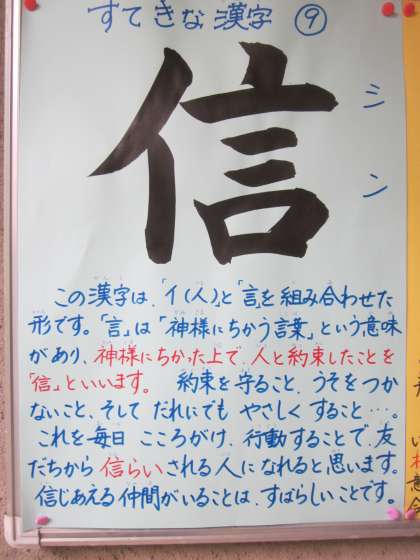 すてきな漢字 ⑨
信
シン
この漢字は、「亻(人)」と「言」を組み合わせた
形です。「言」は「神様にちかう言葉」という意味
があり、神様にちかった上で、人と約束したことを
「信」といいます。 約束を守ること、うそをつか
ないこと、そして だれにでも やさしくすること…。
これを毎日 こころがけ、行動することで、友
だちから 信らいされる人になれると思います。
信じあえる仲間がいることは、すばらしいことです。